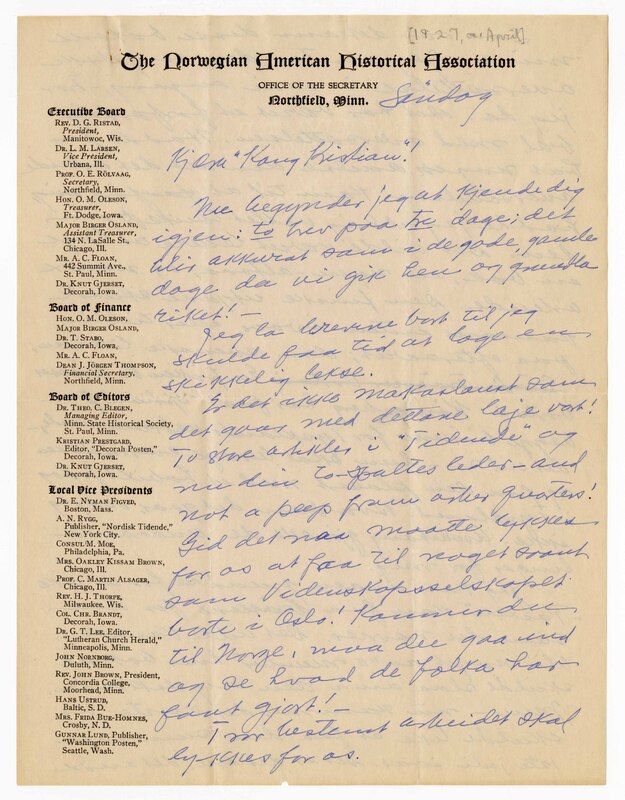 [1927, or April]
The Norwegian American Historical Association
OFFICE OF THE SECRETARY
Northfield, Minn.
Søndag
Executive Board
REV. D. G. RISTAD,
President,
Manitowoc, Wis.
DR. L. M. LARSEN,
Vice President,
Urbana, Ill.
PROF. O. E. RÖLVAAG,
Secretary,
Northfield, Minn.
HON. O. M. OLESON,
Treasurer,
Ft. Dodge, Iowa.
MAJOR BIRGER OSLAND,
Assistant Treasurer,
134 N. LaSalle St.,
Chicago, Ill.
MR. A. C. FLOAN,
442 Summit Ave.,
St. Paul, Minn.
DR. KNUT GJERSET,
Decorah, Iowa.
Board of Finance
HON. O. M. OLESON,
MAJOR BIRGER OSLAND,
DR. T. STABO,
Decorah, Iowa.
MR. A. C. FLOAN,
DEAN J. JÖRGEN THOMPSON,
Financial Secretary,
Northfield, Minn.
Board of Editors
DR. THEO. C. BLEGEN,
Managing Editor,
Minn. State Historical Society,
St. Paul, Minn.
KRISTIAN PRESTGARD,
Editor, "Decorah Posten,"
Decorah, Iowa.
DR. KNUT GJERSET,
Decorah, Iowa.
Local Vice Presidents
DR. E. NYMAN FIGVED,
Boston, Mass.
A. N. RYGG,
Publisher, "Nordisk Tidende,"
New York City.
CONSUL M. MOE,
Philadelphia, Pa.
MRS. OAKLEY KISSAM BROWN,
Chicago, Ill.
PROF. C. MARTIN ALSAGER,
Chicago, Ill.
REV. H. J. THORPE,
Milwaukee, Wis.
COL. CHR. BRANDT,
Decorah, Iowa.
DR. G. T. LEE, Editor,
"Lutheran Church Herald,"
Minneapolis, Minn.
JOHN NORNBORG,
Duluth, Minn.
REV. JOHN BROWN, President,
Concordia College,
Moorhead, Minn.
HANS USTRUD,
Baltic, S. D.
MRS. FRIDA BUE-HOMNES,
Crosby, N. D.
GUNNAR LUND, Publisher,
"Washington Posten,"
Seattle, Wash.
Kjære "Kong Kristian"!
Nu begynder jeg at kjende dig
igjen: to brev paa tre dage; det
blir akkurat som i de gode, gamle
dage da vi gik hen og grundla
riket! –
Jeg la brevene bort til jeg
skulde faa tid at lage en
skikkelig lekse.
Er det ikke makaløust som
det gaar med dettane laje vort!
To store artikler i "Tidende" og
nu din to-spaltes leder – and
not a peep from other quarters!
Gid det naa maatte lykkes
for os at faa til noget saant
som Videnskapsselskapet
borte i Oslo! Kommer du
til Norge, maa du gaa ind
og se hvad de folka har
faat gjort! –
Tror bestemt arbeidet skal
lykkes for os.